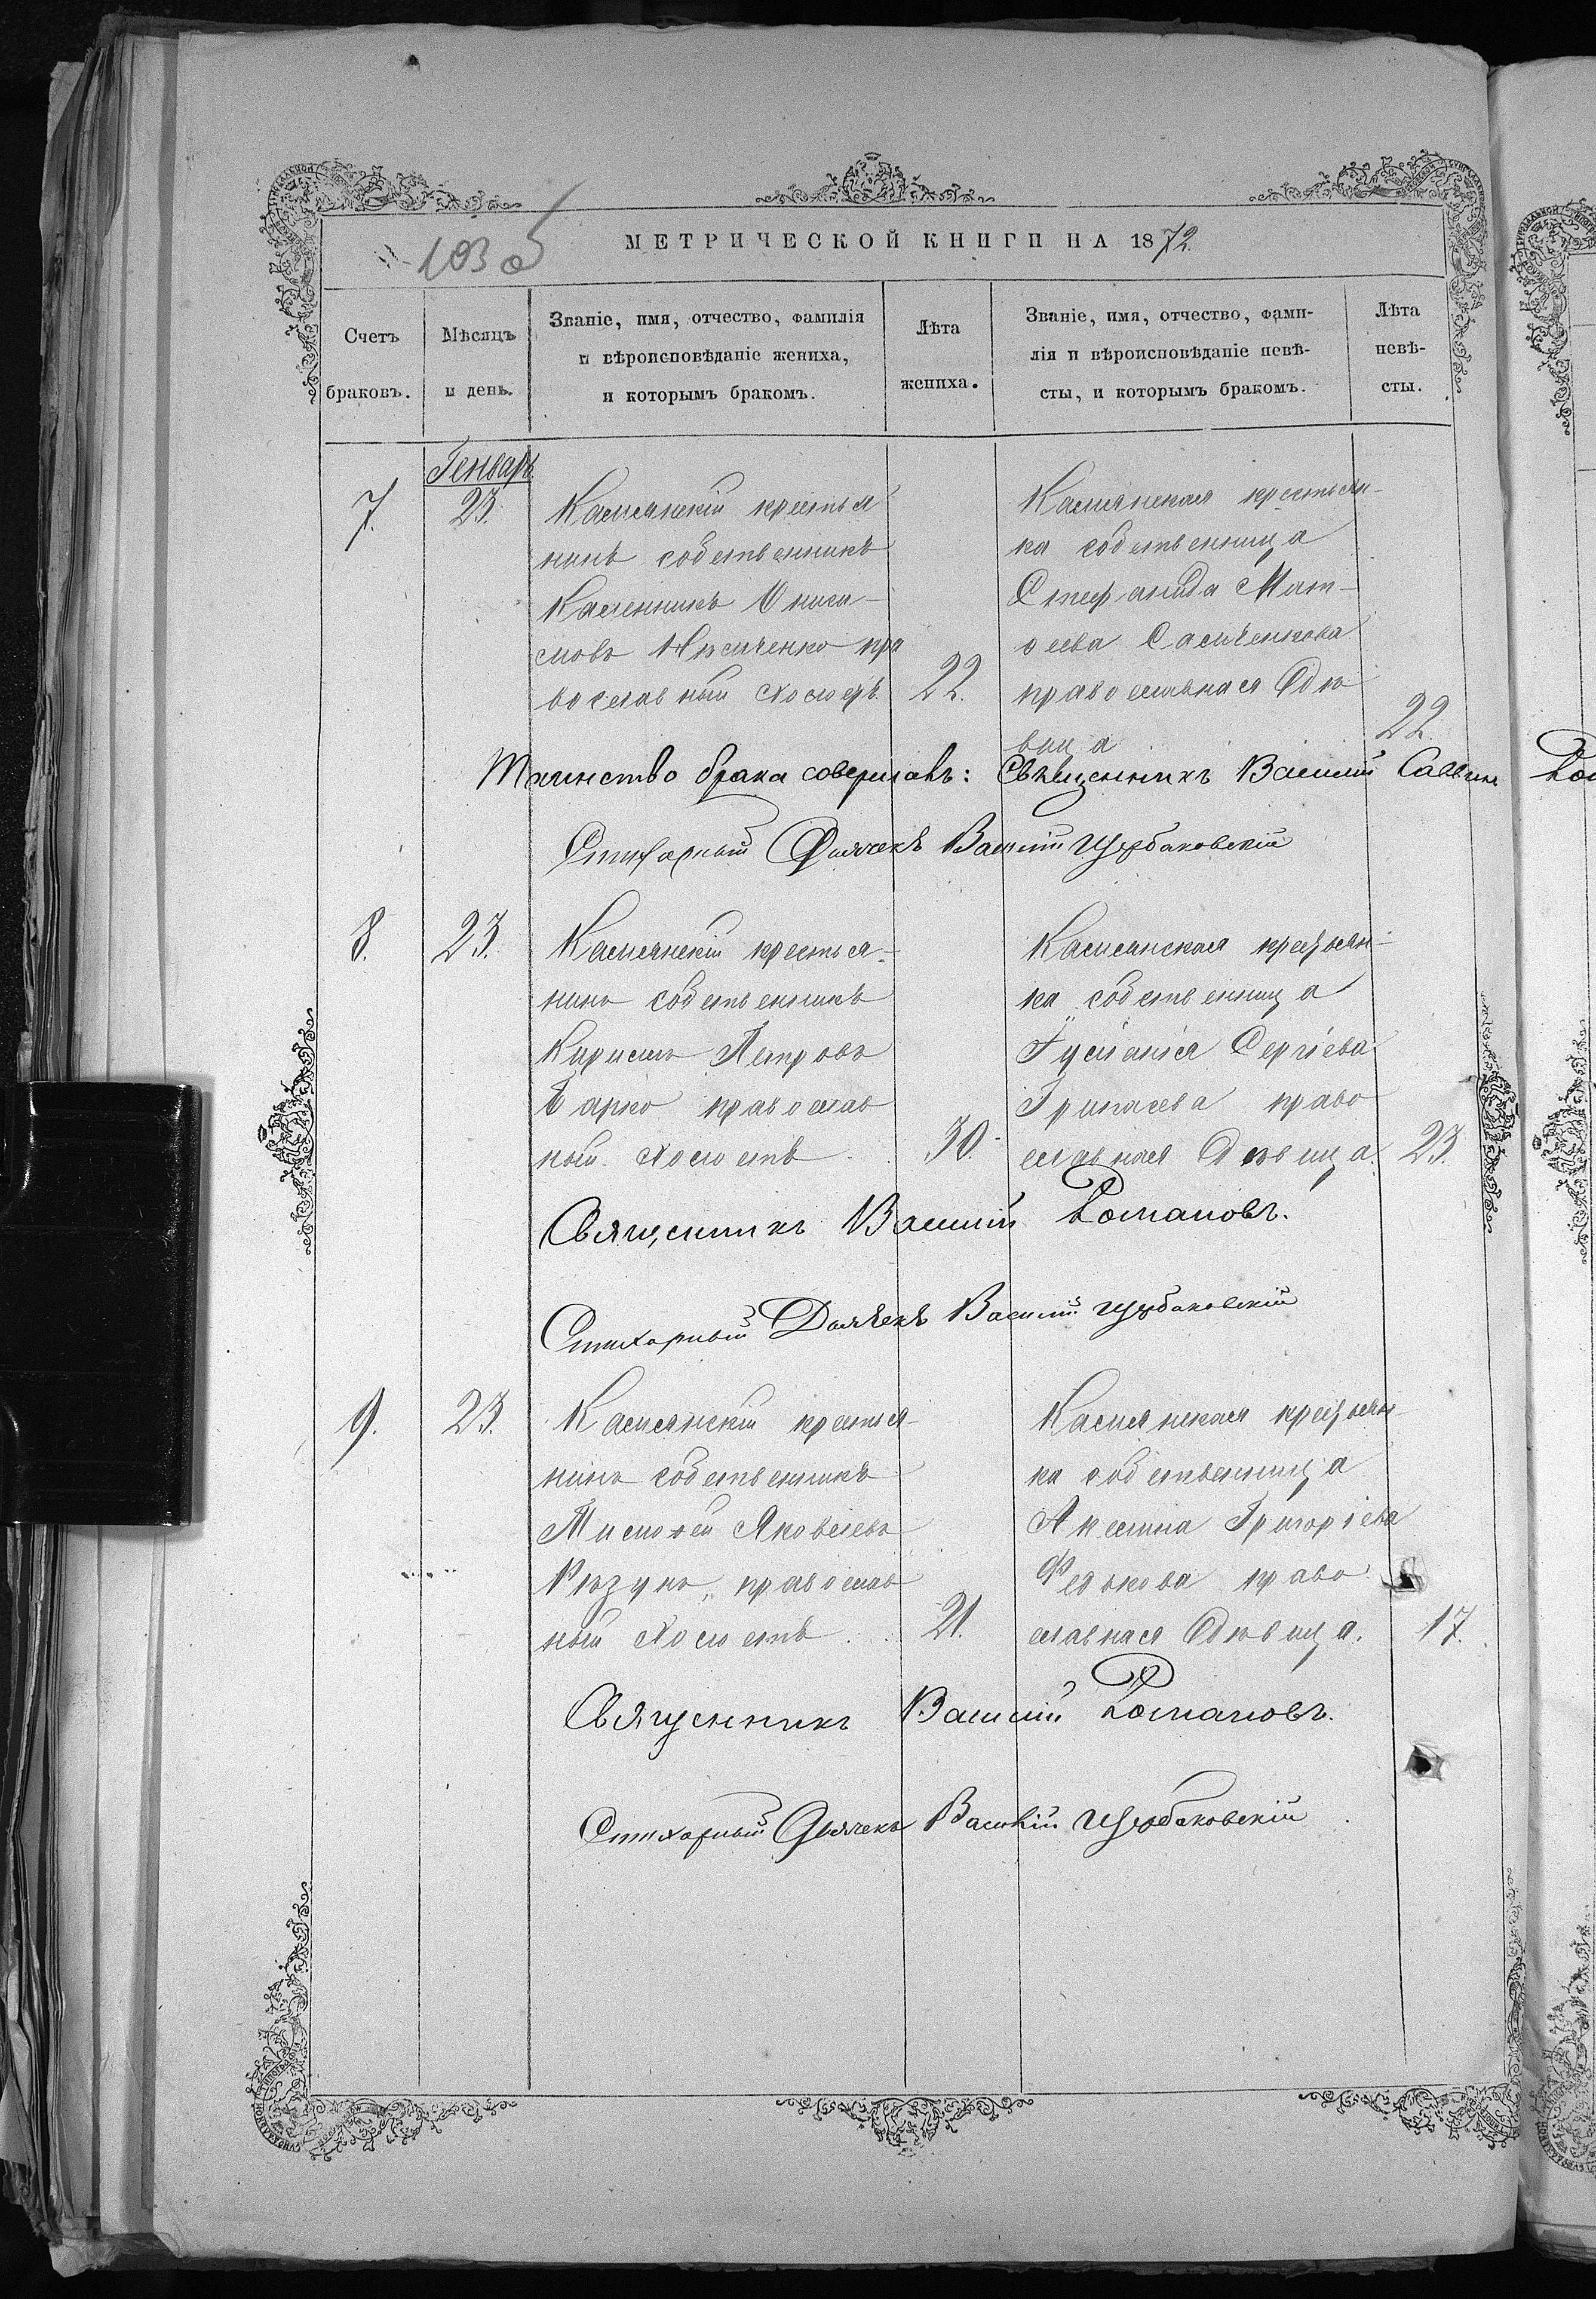 103 об
МЕТРИЧЕСКОЙ КНИГИ НА 1872
Счетъ
браковъ.
Мѣсяцъ
и день.
Званіе, имя, отчество, фамилія
и вѣроисповѣданіе жениха,
и которымъ бракомъ.
Лѣта
жениха.
Званіе, имя, отчество, фами-
лія и вѣроисповѣданіе невѣ-
сты, и которымъ бракомъ.
Лѣта
невѣ-
сты.
Генварь
7. 23.
Камянскій крестья
нинъ собственникъ
Каленникъ Ониси-
мовъ пра
вославный холостъ 22.
Камянская крестьян-
ка собственница
Стефанида Мат-
ѳеева Самченкова
православная дѣ
вица 22.
Таинство брака совершалъ: Священникъ Василій Саввин
Стихарный Дьячекъ Василій Щербаковскій
8. 23.
Камянскій крестья-
нинъ собственникъ
Кирилъ Петровъ
православ
ный холостъ 30.
Камянская крестьян-
ка собственница
Іуліанія Сергіева
право
славная дѣвица. 23.
Священникъ Василій Романовъ.
Стихарный Дьячекъ Василій Щербаковскій
9. 23.
Камянскій крестья-
нинъ собственникъ
Тимоѳей Яковлевъ
Рѣзунъ, православ
ный холостъ 21.
Камянская крестьян-
ка собственница
Аксинія Григоріева
Федькова право
славная дѣвица. 17.
Священникъ Василій Романовъ.
Стихарный Дьячекъ Василій Щербаковскій